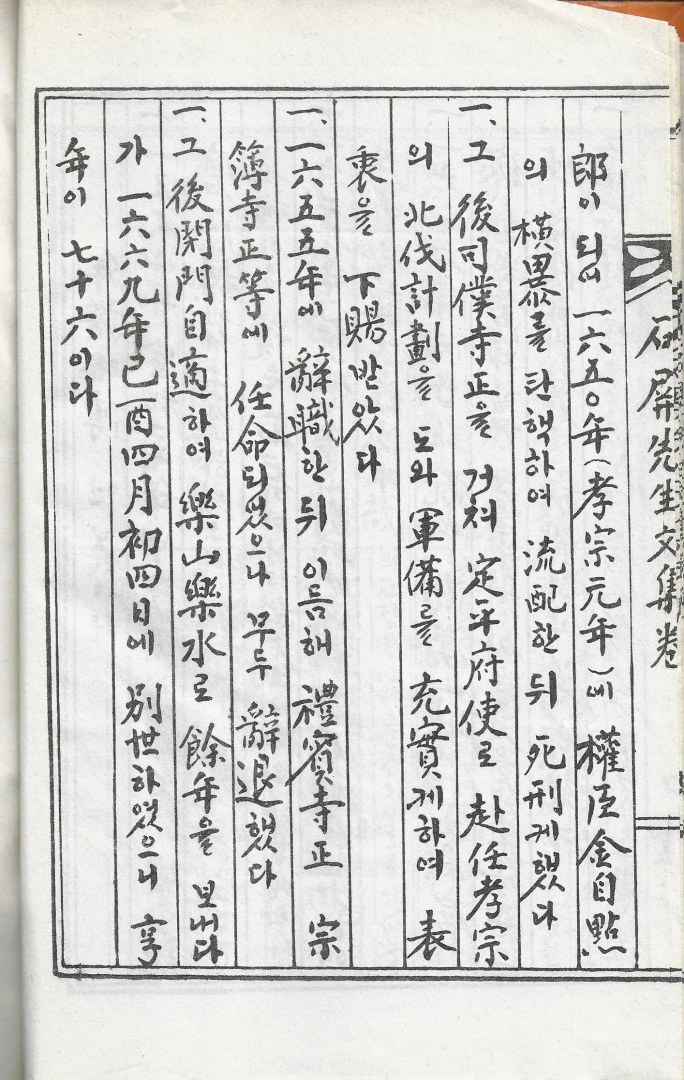 石屛先生文集卷
郎이 되며 一六五○年(孝宗元年)에 權臣金自點
의 橫暴를 탄핵하여 流配한 뒤 死刑게했다
一. 그 後司僕寺正을 거처 定平府使로 赴任孝宗
의 北伐計劃을 도와 軍備를 充實게하여 表
裏을 下賜받았다
一. 一六五五年에 辭職한 뒤 이듬해 禮賓寺正 宗
簿寺正等에 任命되었으나 모두 辭退했다
一. 그 後閉門自適하여 樂山樂水로 餘年을 보내다
가 一六六九年己酉四月初四日에 別世하였으니 享
年이 七十六이다